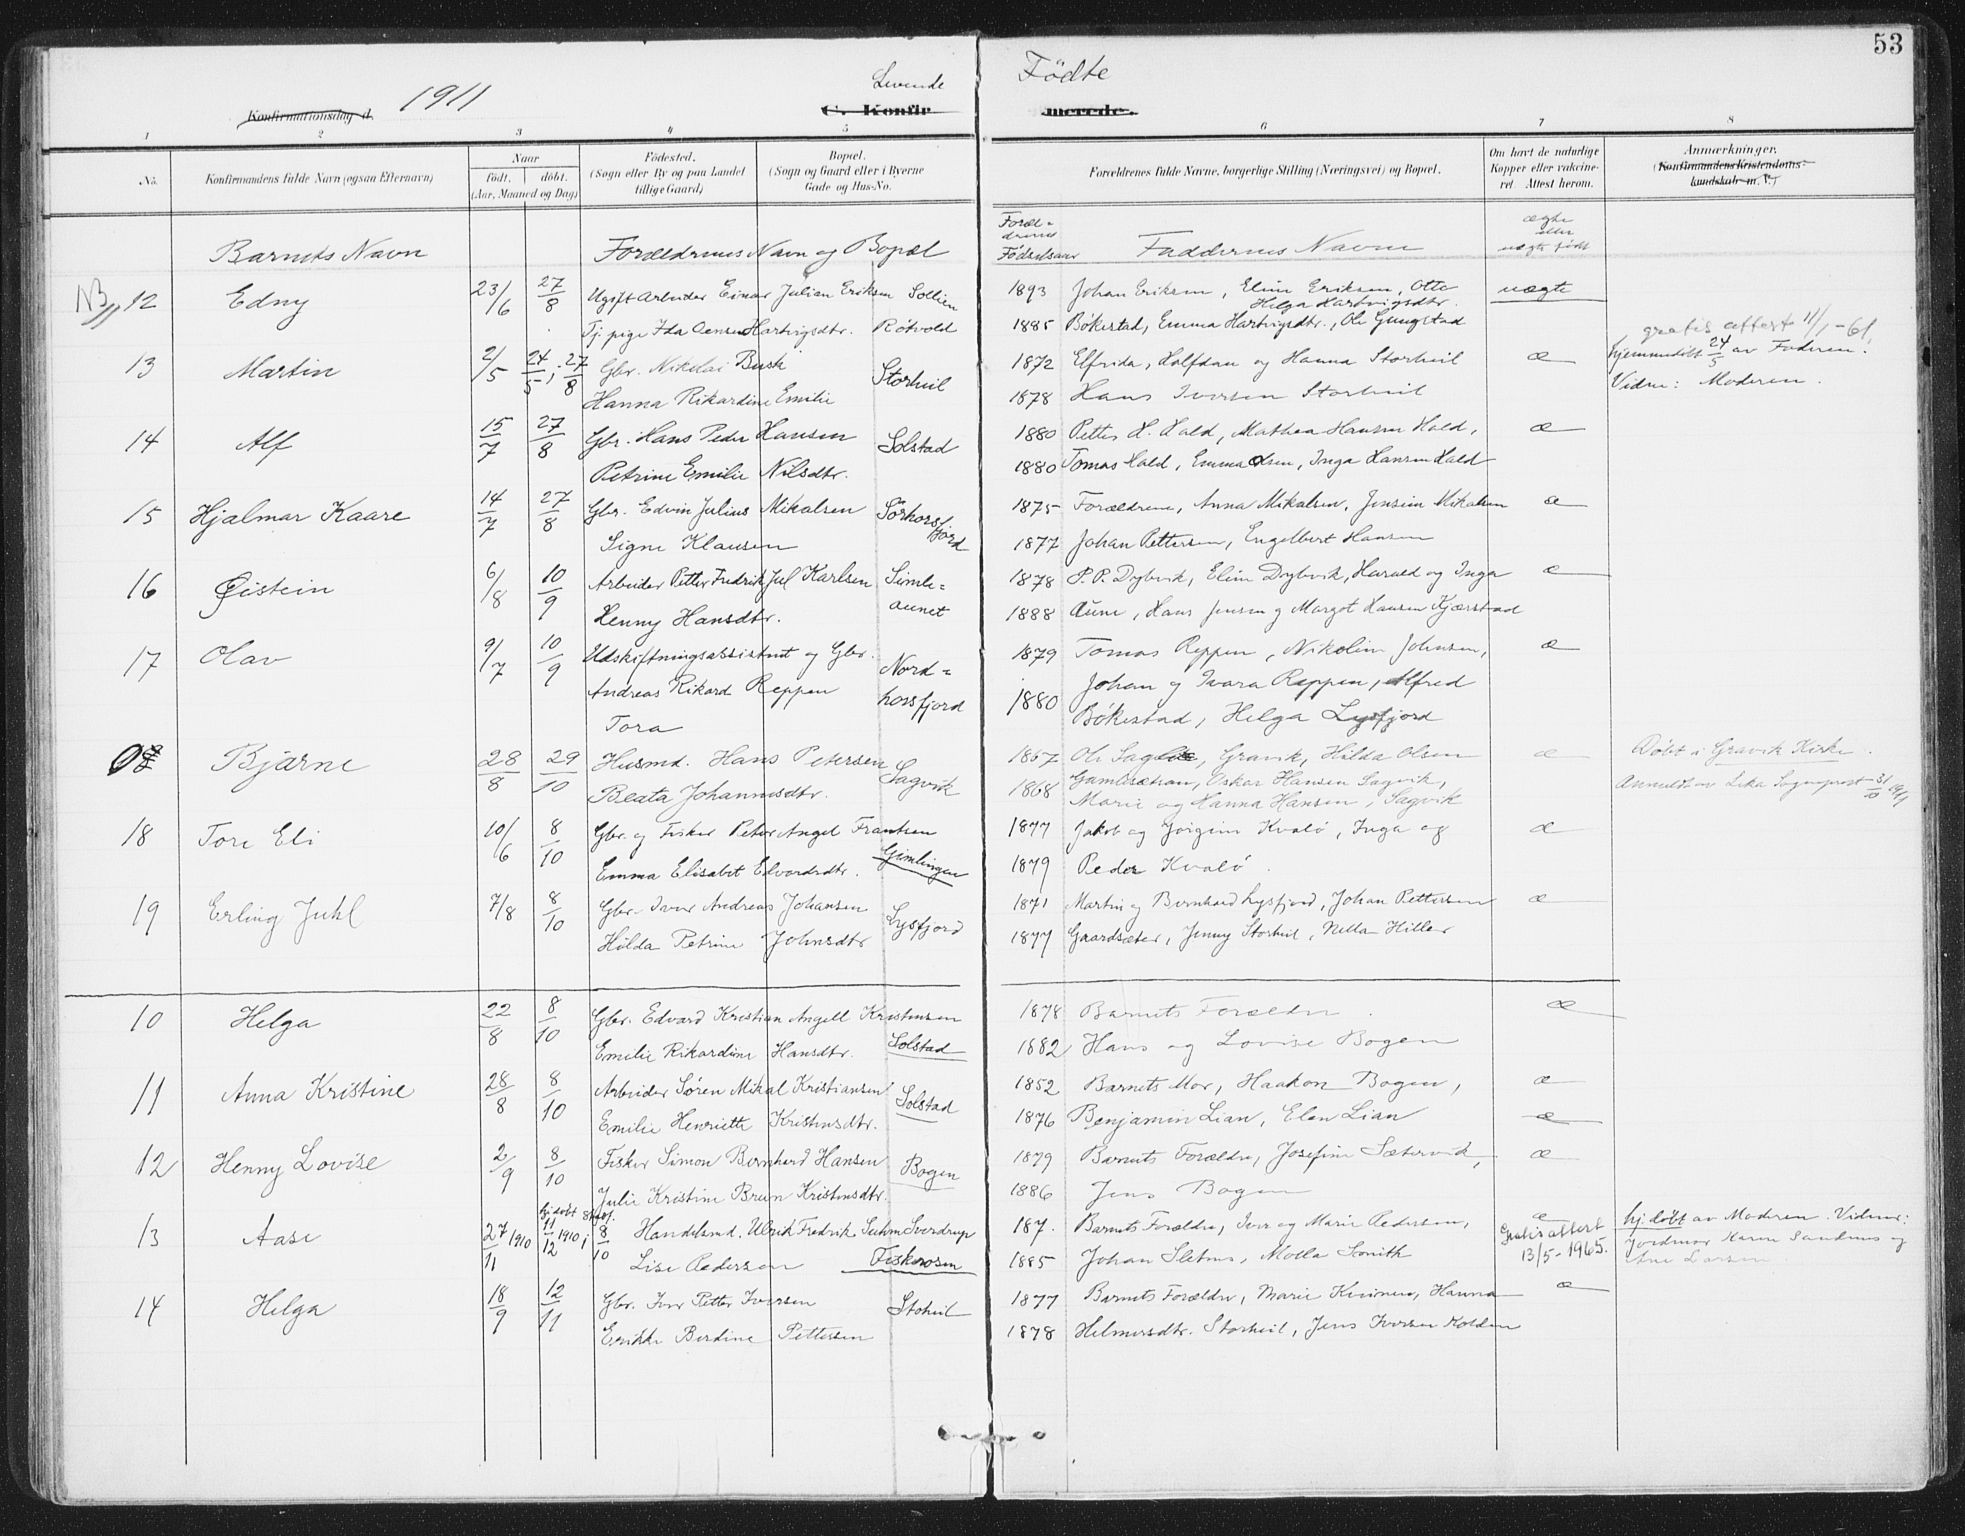 53
1911
Levende Födte
Konfirmationsdag d.
C. Konfir merede.
1 2 3 4 5 6 7 8
No.
Konfirmandens fulde Navn (ogsaa Efternavn)
Naar
født. døbt.
(Aar, Maaned og Dag)
Fødested.
(Sogn eller By og paa Landet
tillige Gaard)
Bopæl.
(Sogn og Gaard eller i Byerne
Gade og Hus-No.
Forældrenes fulde Navne, borgerlige Stilling (Næringsvei) og Bopæl.
Om havt de naturlige
Kopper eller vakcine-
ret Attest herom.
Anmærkninger.
(Konfirmandens Kristendoms-
kundskab m. v.)
Barnets Navn
Forældrenes Navn og Bopæl
Foræl-
drenes
Fødselsaar
Faddernes Navne
ægte
eller
uægte født
NB 12 Edny 23/6 27/8 Ugift Arbeider Einar Julian Eriksen Sollien
Tj. pige Ida Hartvigsdtr. Rötvold
1893 Johan Eriksen, Eline Eriksen, Otto uægte
Helga Hartvigsdtr.
1885 Bökestad, Emma Hartvigsdtr., Ole Gungstad
13 Martin 2/5 24/5; 27/8 Gbr. Nikolai Busk
Hanna Rikardine Emilie Storheil
1872 Elfrida, Halfdan og Hanna Storheil æ
1878 Hans Iversen Storheil
gratis attest 11/1-61.
hjemmedöbt 24/5 av Faderen.
Vidne: Moderen.
14 Alf 15/7 27/8 Gbr. Hans Peder Hansen Solstad
Petrine Emilie Nilsdtr.
1880 Petter H. Hald, Mathea Hansen Hald, æ
1880 Tomas Hald, Emma Olsen, Inga Hansen Hald
15 Hjalmar Kaare 14/7 27/8 Gbr. Edvin Julius Mikalsen Sörhorsfjord
Signe Klausen
1875 Forældrene, Anna Mikalsen, Jensine Mikalsen æ
1877 Johan Pettersen, Engelbert Hansen
16 Øistein 6/8 10/9 Arbeider Petter Fredrik Jul Karlsen Simle-
aunet
Henny Hansdtr.
1878 P. P. Dybvik, Eline Dybvik, Harald og Inga æ
1888 Aune, Hans Jensen og Margot Hansen Kjærstad
17 Olav 9/7 10/9 Udskiftningsassistent og Gbr.
Andreas Rikard Reppen Nord-
horsfjord
Tora
1879 Tomas Reppen, Nikoline Johnsen, æ
1880 Johan og Ivara Reppen, Alfred
Bökestad, Helga Lysfjord
Bjarne 28/8 29/10 Husmd. Hans Petersen
Beata Johannesdtr. Sagvik
1867 Ole Gravik, Hilda Olsen æ
1868 Oskar Hansen Sagvik,
Marie og Hanna Hansen, Sagvik
Döbt i Gravik Kirke.
Anmeldt av Leka Sogneprest 31/10 1911
18 Tore Eli 10/6 8/10 Gbr. og Fisker Peter Angel Frantsen
Emma Elisabet Edvardsdtr. Gimlingen
1877 Jakob og Jörgine Kvalö, Inga og æ
1879 Peder Kvalö.
19 Erling Juhl 7/8 8/10 Gbr. Iver Andreas Johansen Lysfjord
Hilda Petrine Johnsdtr
1871 Martin og Bernhard Lysfjord, Johan Pettersen æ
1877 Gaardsæter, Jenny Storheil, Nella Hiller
10 Helga 22/8 8/10 Gbr. Edvard Kristian Angell Kristensen
Emilie Rikardine Hansdtr. Solstad
1878 Barnets Forældre. æ
1882 Hans og Lovise Bogen
11 Anna Kristine 28/8 8/10 Arbeider Sören Mikal Kristiansen Solstad
Emilie Henriette Kristensdtr.
1852 Barnets Mor, Haakon Bogen, æ
1876 Benjamin Lian, Elen Lian æ
12 Henny Lovise 2/9 8/10 Fisker Simon Bernhard Hansen Bogen
Julie Kristine Brun Kristensdtr.
1879 Barnets Forældre, Josefine Sætervik, æ
1886 Jens Bogen
13 Aase 27/11 1910 hj. döbt 11/12 1910; 8/10 Handelsmd. Ulrik Fredrik Suhm Sverdrup
Lise Pedersen Fiskerosen
187. Barnets Forældre, Iver og Marie Pedersen, æ
1885 Johan Sletnes, Molla Smith
Gratis attest
13/5-1965.
hj. döbt av Moderen. Vidner:
Jordmor Karen Sandnes og
Ane Larsen
14 Helga 18/9 12/11 Gbr. Iver Petter Iversen Stoheil
Erikke Berdine Pettersen
1877 Barnets Forældre, Marie Hanna æ
1878 Helmersdtr. Storheil, Jens Iversen Kolden